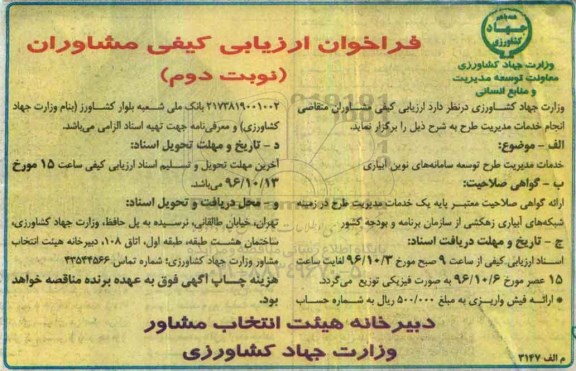 جهاد
کشاورزی
وزارت جهاد کشاورزی
معاونت توسعه مدیریت
و منابع انسانی
فراخوان ارزیابی کیفی مشاوران
(نوبت دوم)
وزارت جهاد کشاورزی درنظر دارد ارزیابی کیفی مشاوران متقاضی
انجام خدمات مدیریت طرح به شرح ذیل را برگزار نماید.
الف - موضوع:
خدمات مدیریت طرح توسعه سامانه‌های نوین آبیاری
ب - گواهی صلاحیت:
ارائه گواهی صلاحیت معتبر پایه یک خدمات مدیریت طرح در زمینه
شبکه‌های آبیاری زهکشی از سازمان برنامه و بودجه کشور
ج - تاریخ و مهلت دریافت اسناد:
اسناد ارزیابی کیفی از ساعت ۹ صبح مورخ ۹۶/۱۰/۳ لغایت ساعت
۱۵ عصر مورخ ۹۶/۱۰/۶ به صورت فیزیکی توزیع می‌گردد.
* ارائه فیش واریزی به مبلغ ۵۰۰/۰۰۰ ریال به شماره حساب
۲۱۷۳۸۱۹۰۰۱۰۰۲ بانک ملی شعبه بلوار کشاورز (بنام وزارت جهاد
کشاورزی) و معرفی‌نامه جهت تهیه اسناد الزامی می‌باشد.
د - تاریخ و مهلت تحویل اسناد:
آخرین مهلت تحویل و تسلیم اسناد ارزیابی کیفی ساعت ۱۵ مورخ
۹۶/۱۰/۱۳ می‌باشد.
و - محل دریافت و تحویل اسناد:
تهران، خیابان طالقانی، نرسیده به پل حافظ، وزارت جهاد کشاورزی،
ساختمان هشت طبقه، طبقه اول، اتاق ۱۰۸، دبیرخانه هیئت انتخاب
مشاور وزارت جهاد کشاورزی؛ شماره تماس ۴۳۵۴۴۵۶۶
هزینه چاپ آگهی فوق به عهده برنده مناقصه خواهد
بود.
دبیرخانه هیئت انتخاب مشاور
وزارت جهاد کشاورزی
م الف ۳۱۴۷